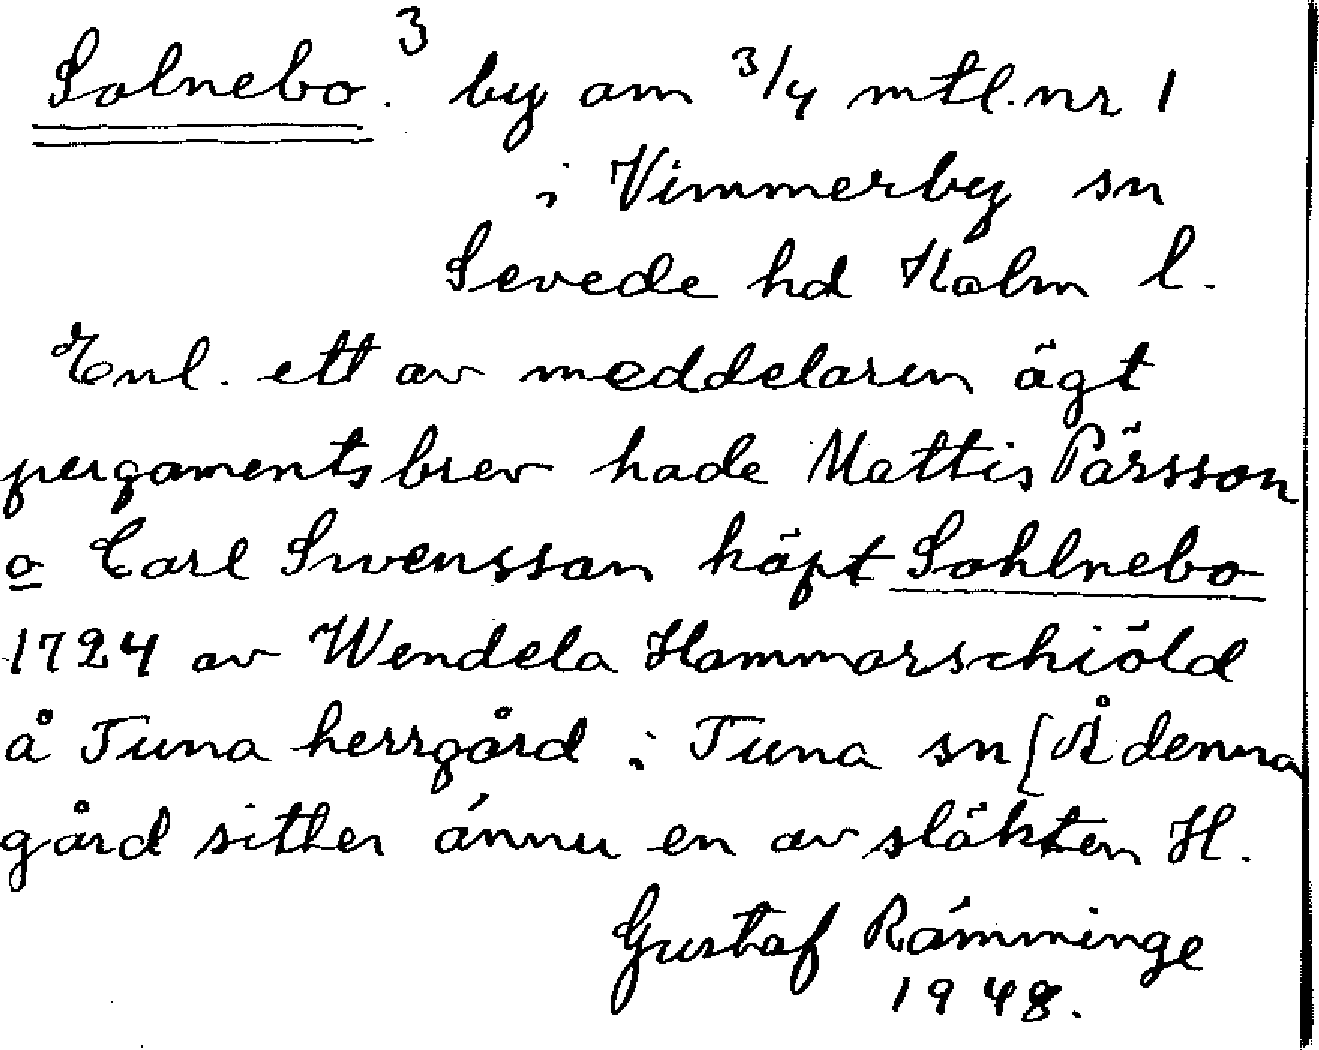 Solnebo. 3 by om 3/4 mtl. nr 1
i Vimmerby sn
Sevede hd Kalm l.
Enl. ett av meddelaren ägt
pergamentsbrev hade Mattis Pärsson
o Carl Swensson köpt Sohlnebo
1724 av Wendela Hammarschiöld
å Tuna herrgård i Tuna sn [Å denna
gård sitter ännu en av släkten H.
Gustaf Rämminge
1948.